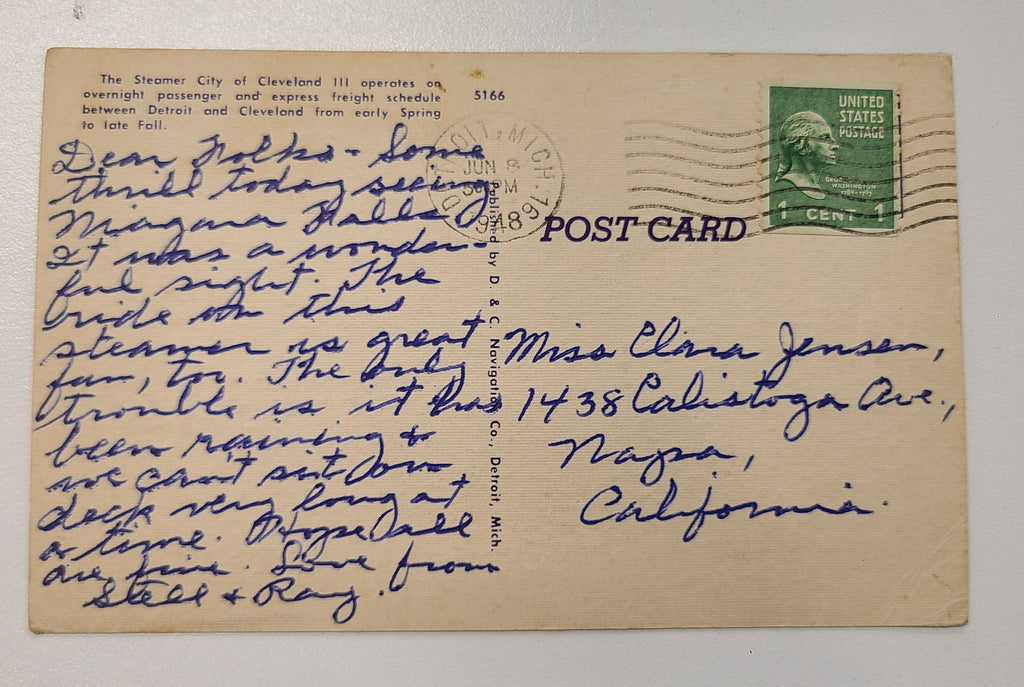 The Steamer City of Cleveland III operates on
overnight passenger and express freight schedule
between Detroit and Cleveland from early Spring
to late Fall.
5166
Dear Folks - Some
thrill today seeing
Niagara Falls
It was a wonder-
ful sight. The
ride on this
steamer is great
fun, too. The only
trouble is it has
been raining &
we can't sit on
deck very long at
a time. Hope all
are fine. Love from
Stell & Ray.
Published by D. & C. Navigation Co., Detroit, Mich.
DETROIT, MICH. 16
JUN 8
PM
1948
UNITED
STATES
POSTAGE
GEORGE
WASHINGTON
1789-1797
1 CENT 1
POST CARD
Miss Clara Jensen,
1438 Calistoga Ave.,
Napa,
California.